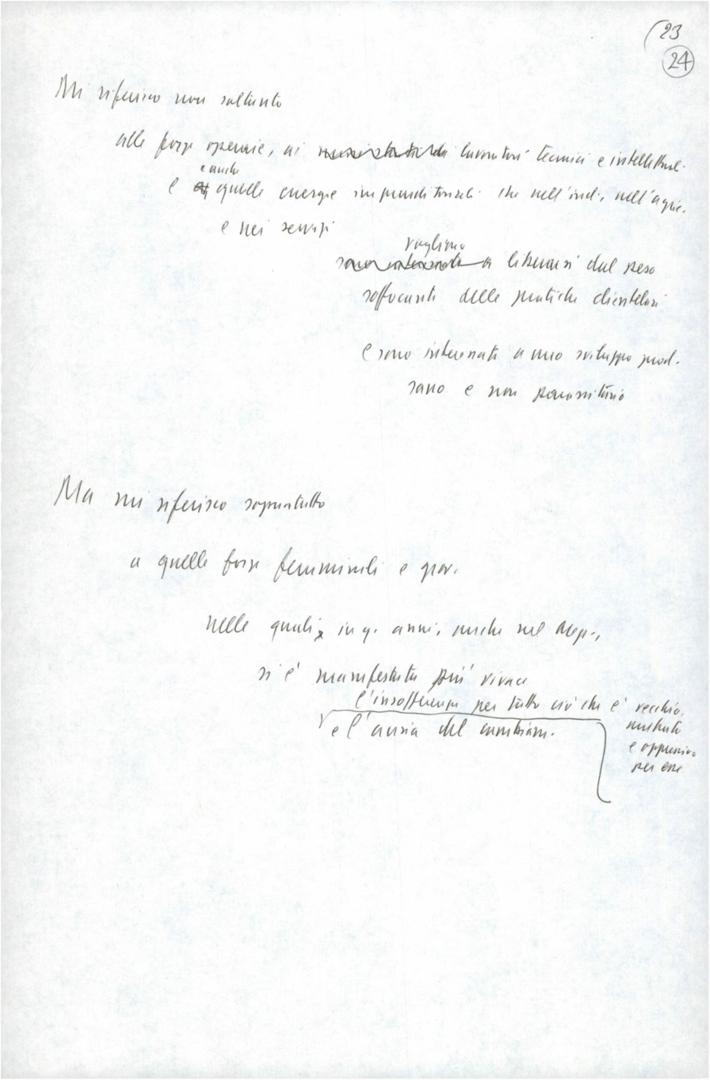 23
24
Mi riferisco non soltanto
alle forze operaie, ai lavoratori tecnici e intellettual.
e anche
e quelle energie imprenditoriali che nell'ind., nell'agric.
e nei servizi
vogliono
sono interessate a liberarsi dal peso
soffocante delle pratiche clientelari
e sono interessate a uno sviluppo prod.
sano e non parassitario
Ma mi riferisco soprattutto
a quelle forze femminili e giov.
nelle quali, in q. anni, anche nel Mezz.,
si è manifestata più vivace
l'insofferenza per tutto ciò che è vecchio,
e l'ansia del cambiam.
e oppressivo
per esse